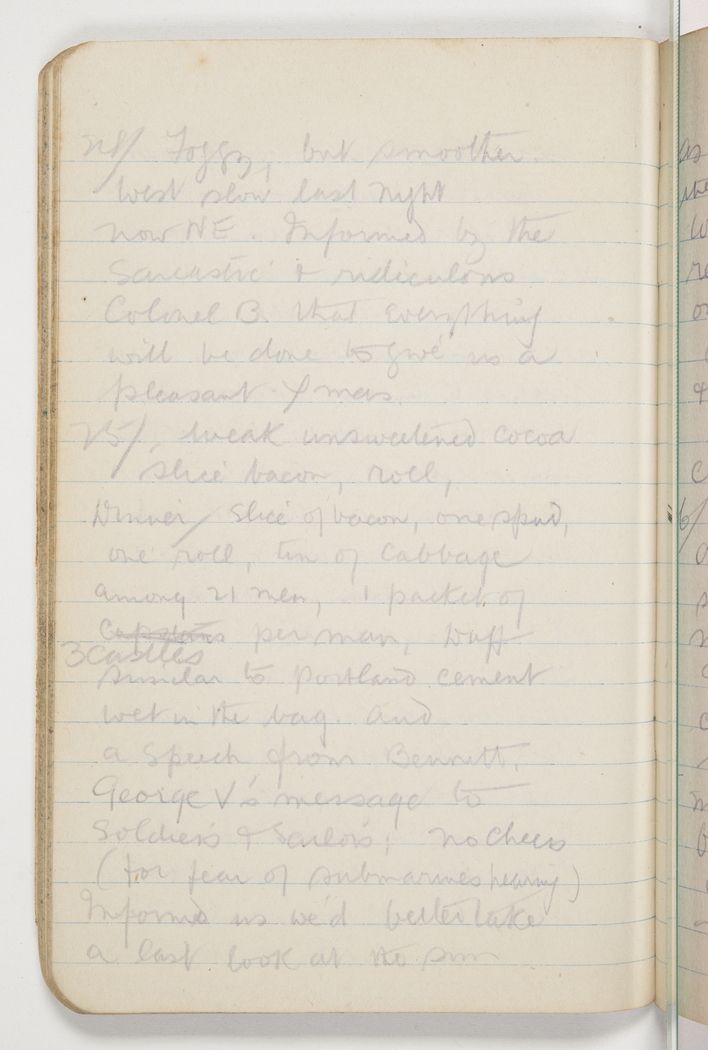 24/ Foggy, but smoother.
West slow last night
now NE. Informed by the
Sarcastic & ridiculous
Colonel B. that everything
will be done to give us a
pleasant Xmas
25/ weak unsweetened cocoa
slice bacon, roll,
Dinner/ Slice of bacon, one spud,
one roll, tin of Cabbage
among 21 men, 1 packet of
Capstans per man, Duff
3castles
similar to Portland cement
wet in the bag. And
a Speech from Bennett,
George V's message to
Soldiers & Sailors; no cheers
(for fear of submarines hearing)
Informed us we'd better take
a last look at the sun